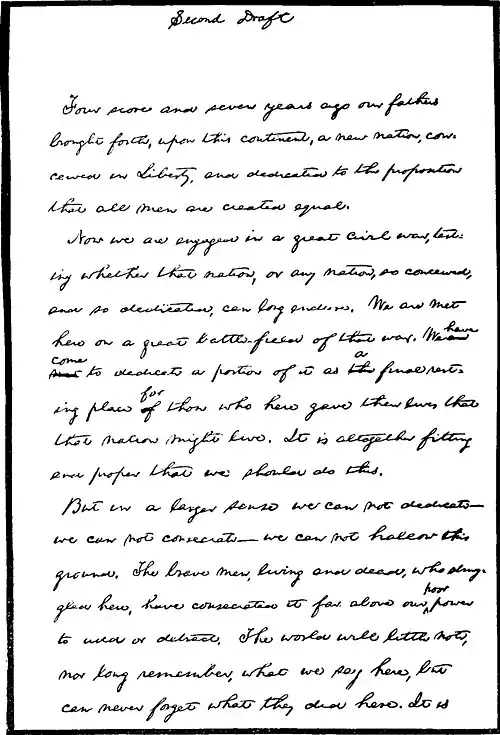 Second Draft
Four score and seven years ago our fathers
brought forth, upon this continent, a new nation, con-
ceived in Liberty, and dedicated to the proposition
that all men are created equal.
Now we are engaged in a great civil war, test-
ing whether that nation, or any nation, so conceived,
and so dedicated, can long endure. We are met
here on a great battle-field of that war. We are have
come
met to dedicate a portion of it as the a final rest-
for
ing place of those who here gave their lives that
that nation might live. It is altogether fitting
and proper that we should do this.
But in a larger sense we can not dedicate—
we can not consecrate— we can not hallow this
ground. The brave men, living and dead, who strug-
gled here, have consecrated it far above our poor power
to add or detract. The world will little note,
nor long remember, what we say here, but
can never forget what they did here. It is